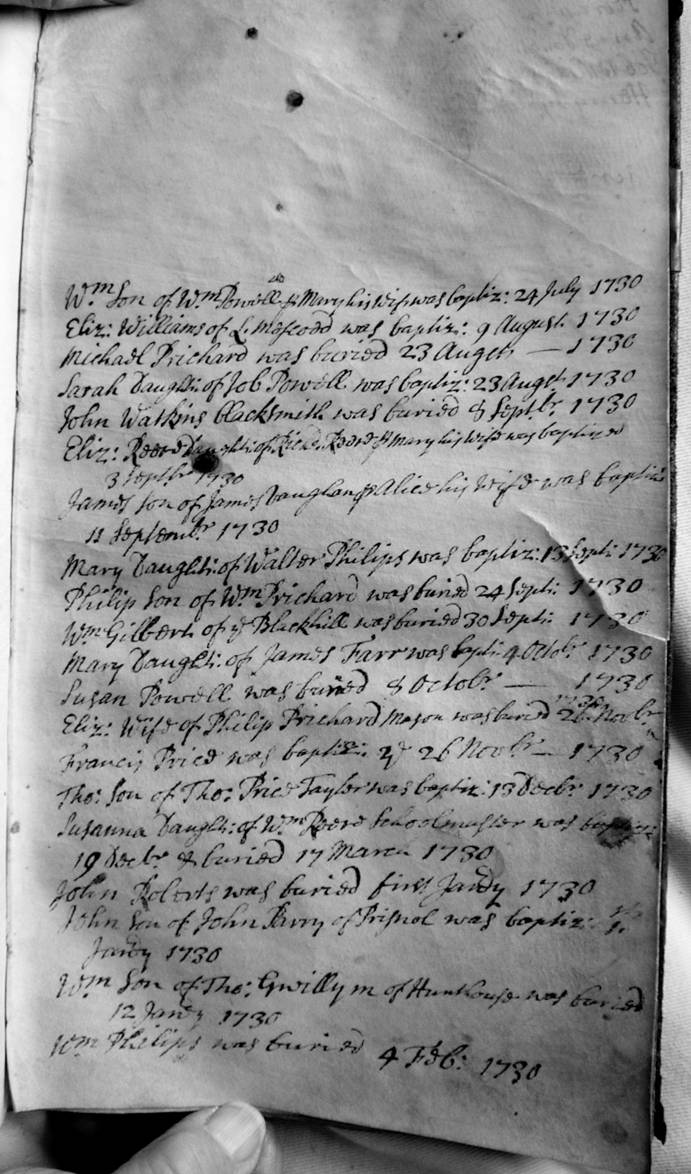 Wm Son of Wm Powell & Mary his wife was baptiz: 24 July 1730
Eliz: Williams of L. was baptiz: 9 August 1730
Michael Prichard was buried 23 Augst — 1730
Sarah Daught: of Job Powell was baptiz: 23 Augst 1730
John Watkins blacksmith was buried 8 Septbr 1730
Eliz: Reece Daught: of Rich: Reece & Mary his Wife was baptized
3 Septbr 1730
James Son of James Vaughan & Alice his Wife was baptiz:
11 Septembr 1730
Mary Daught: of Walter Philips was baptiz: 13 Septr: 1730
Philip Son of Wm Prichard was buried 24 Septr: 1730
Wm Gilbert of ye Blackhill was buried 30 Septr: 1730
Mary Daught: of James Farr was bapti: 4 Octobr 1730
Susan Powell was buried 8 Octobr — 1730
Eliz: Wife of Philip Prichard Mason was buried 26 Novbr 1730
Francis Price was baptiz: ye 26 Novbr — 1730
Tho: Son of Tho: Price Taylor was baptiz: 13 Decbr 1730
Susanna Daught: of Wm Reece Schoolmaster was baptiz:
19 Decbr & buried 17 March 1730
John Roberts was buried first Janry 1730
John Son of John Parry of Trisnol was baptiz:
Janry 1730
Wm Son of Tho: Gwillym of Hunthouse was buried
12 Janry 1730
Wm Philips was buried 4 Feb: 1730